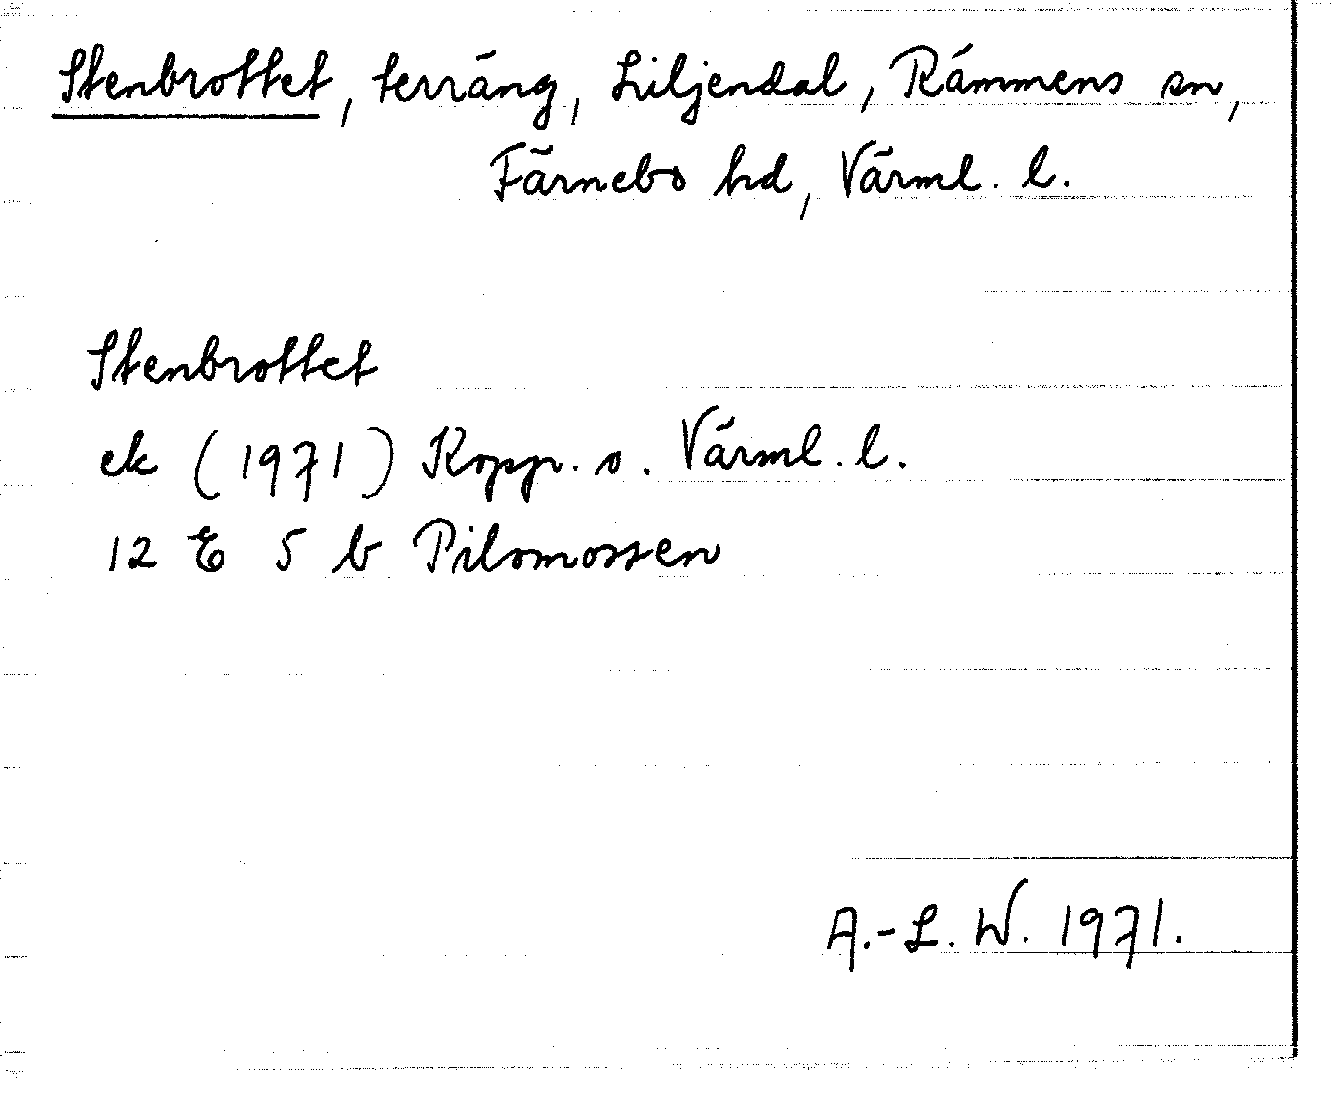 Stenbrottet, terräng, Liljendal, Rämmens sn,
Färnebo hd, Värml. l.
Stenbrottet
ek (1971) Kopp. o. Värml. l.
12 E 5 b Pilsmossen
A.-L. W. 1971.